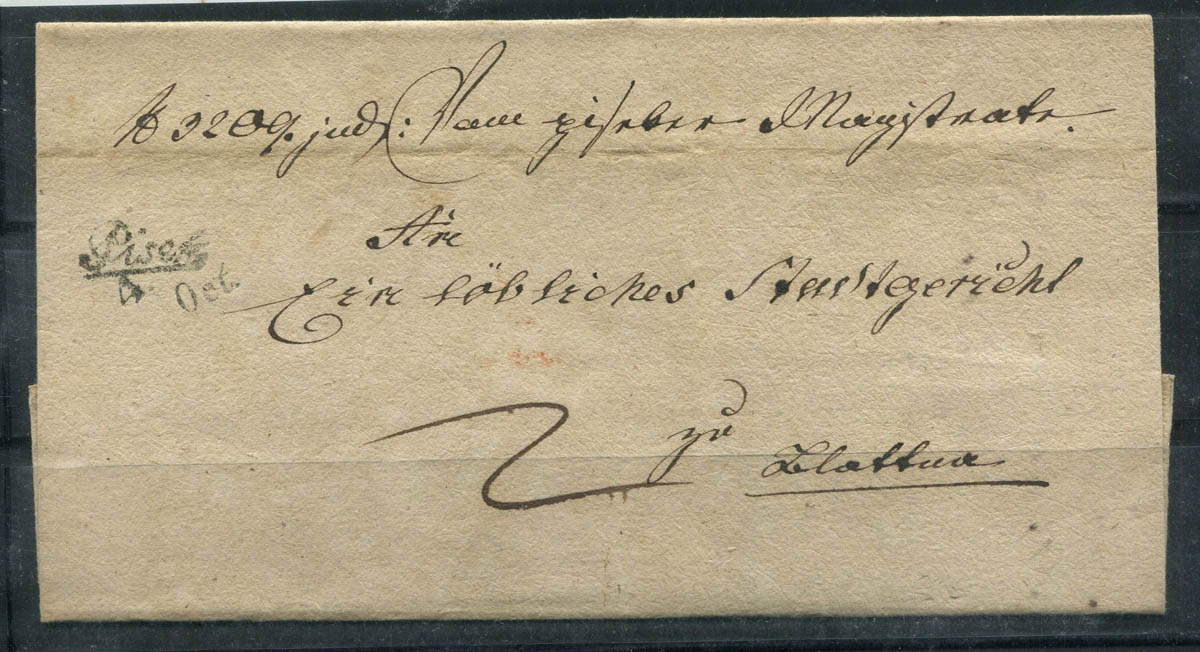 N 3209. jud: Vom piseker Magistrate.
An
Pisek
4. Oct.
Ein löbliches Stadtgericht
zu
Blattna